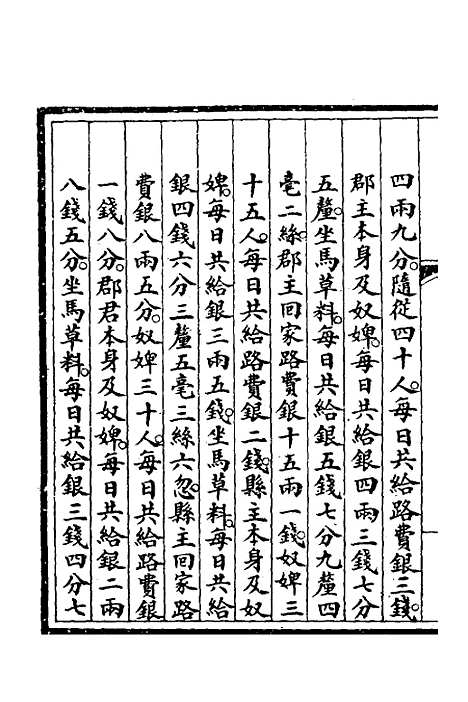 四兩九分。隨從四十人。每日共給路費銀三錢。
郡主本身及奴婢。每日共給銀四兩三錢七分
五釐。坐馬草料。每日共給銀五錢七分九釐四
毫二絲。郡主回家路費銀十五兩一錢。奴婢三
十五人。每日共給路費銀二錢。縣主本身及奴
婢。每日共給銀三兩五錢。坐馬草料。每日共給
銀四錢六分三釐五毫三絲六忽。縣主回家路
費銀八兩五分。奴婢三十人。每日共給路費銀
一錢八分。郡君本身及奴婢。每日共給銀二兩
八錢五分。坐馬草料。每日共給銀三錢四分七